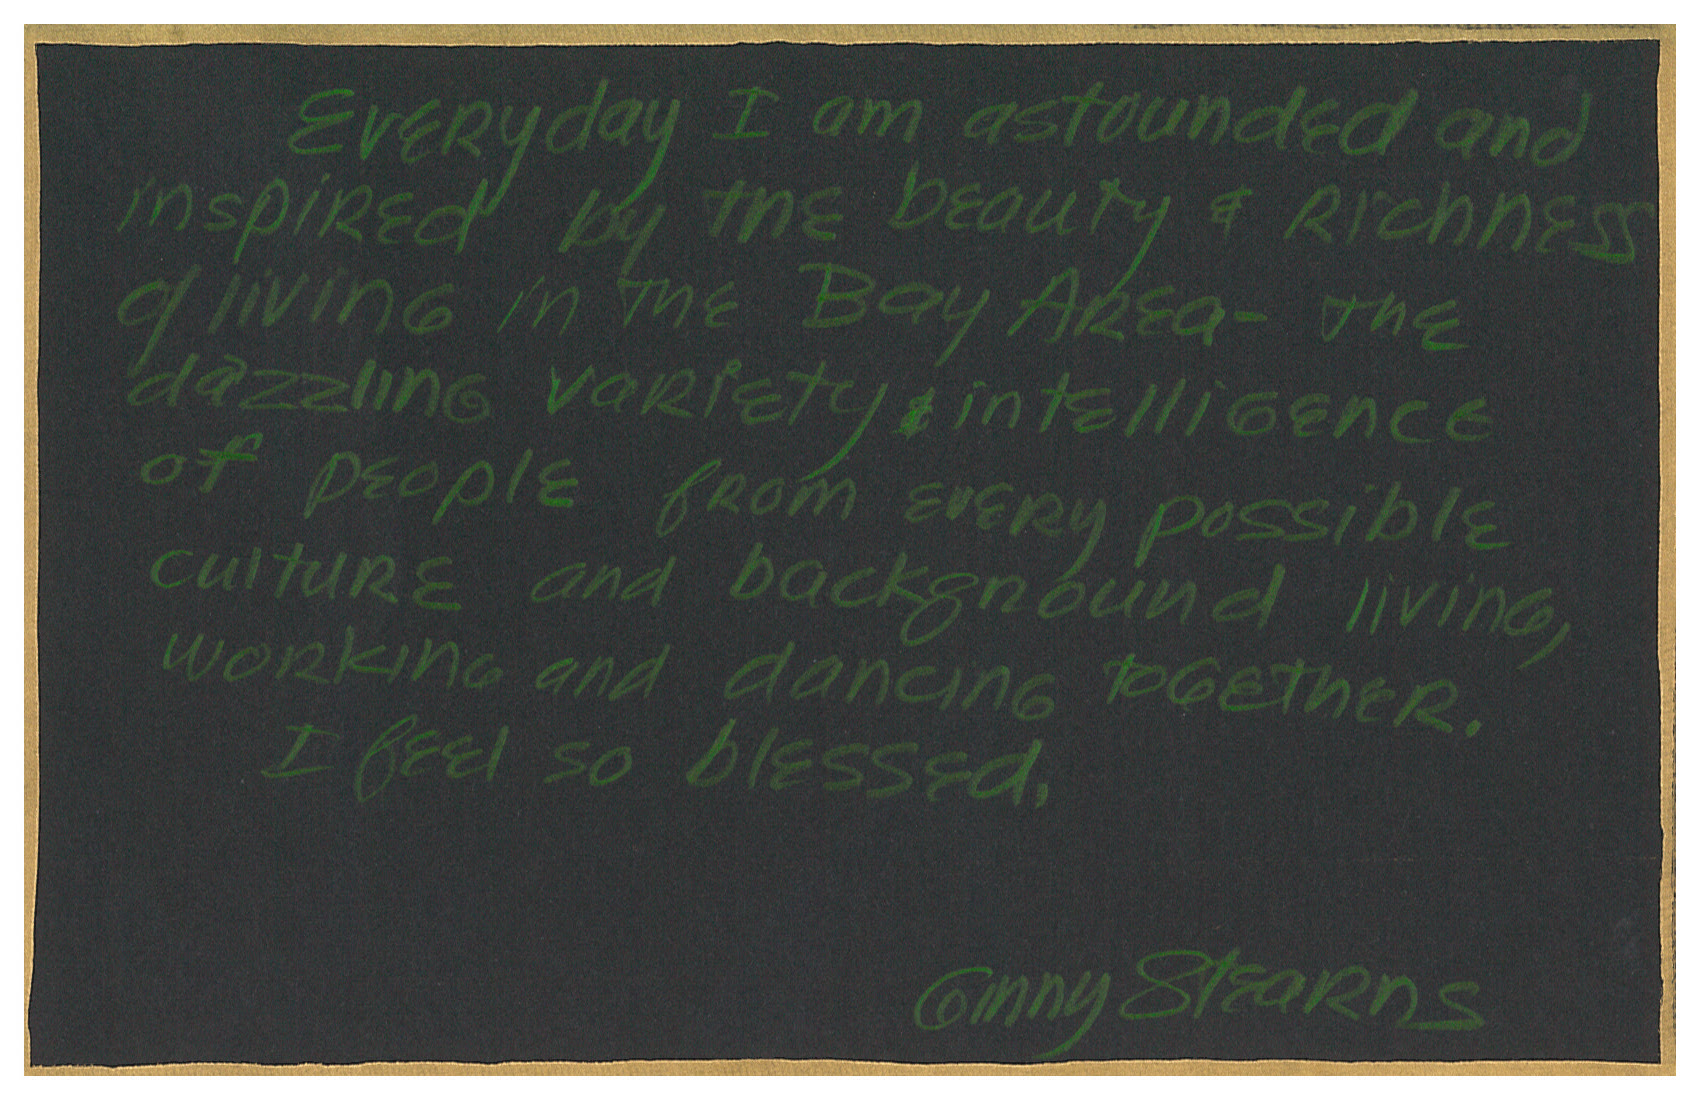 Everyday I am astounded and
inspired by the beauty & richness
of living in the Bay Area - the
dazzling variety & intelligence
of people from every possible
culture and background living,
working and dancing together.
I feel so blessed.
Ginny Stearns